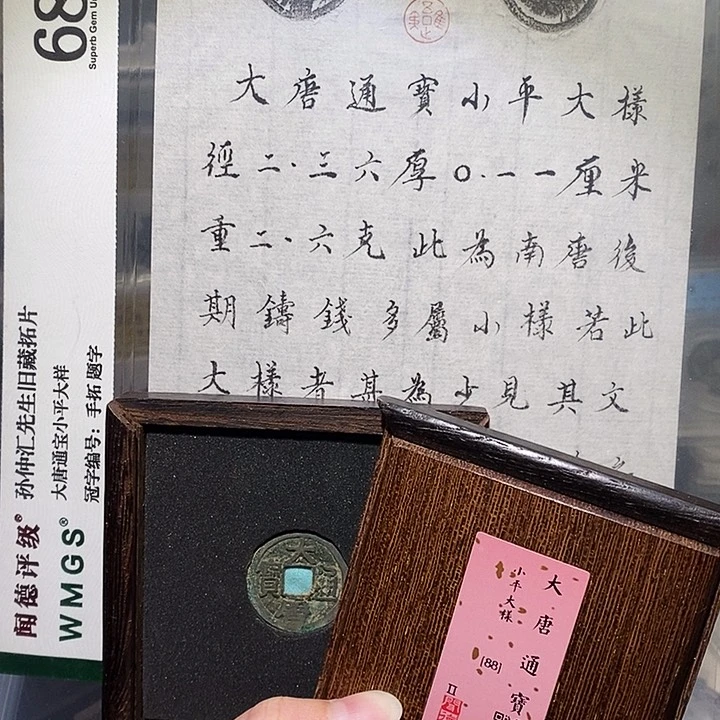 大唐通寶小平大樣
徑二.三六厚0.一一厘米
重二.六克此為南唐後
期鑄錢多屬小樣若此
大樣者甚為少見其文
68
Superb Gem
孙仲汇先生旧藏拓片
大唐通宝小平大样
冠字编号：手拓 题字
闻德评级®
WMGS®
大唐通寶
小平大樣
[88]
II